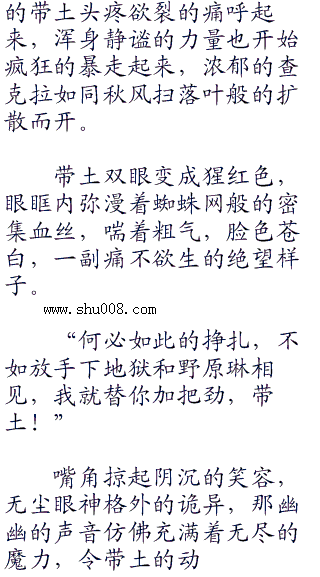 的带土头疼欲裂的痛呼起
来，浑身静谧的力量也开始
疯狂的暴走起来，浓郁的查
克拉如同秋风扫落叶般的扩
散而开。
带土双眼变成猩红色，
眼眶内弥漫着蜘蛛网般的密
集血丝，喘着粗气，脸色苍
白，一副痛不欲生的绝望样
子。
www.shu008.com
“何必如此的挣扎，不
如放手下地狱和野原琳相
见，我就替你加把劲，带
土！”
嘴角掠起阴沉的笑容，
无尘眼神格外的诡异，那幽
幽的声音仿佛充满着无尽的
魔力，令带土的动